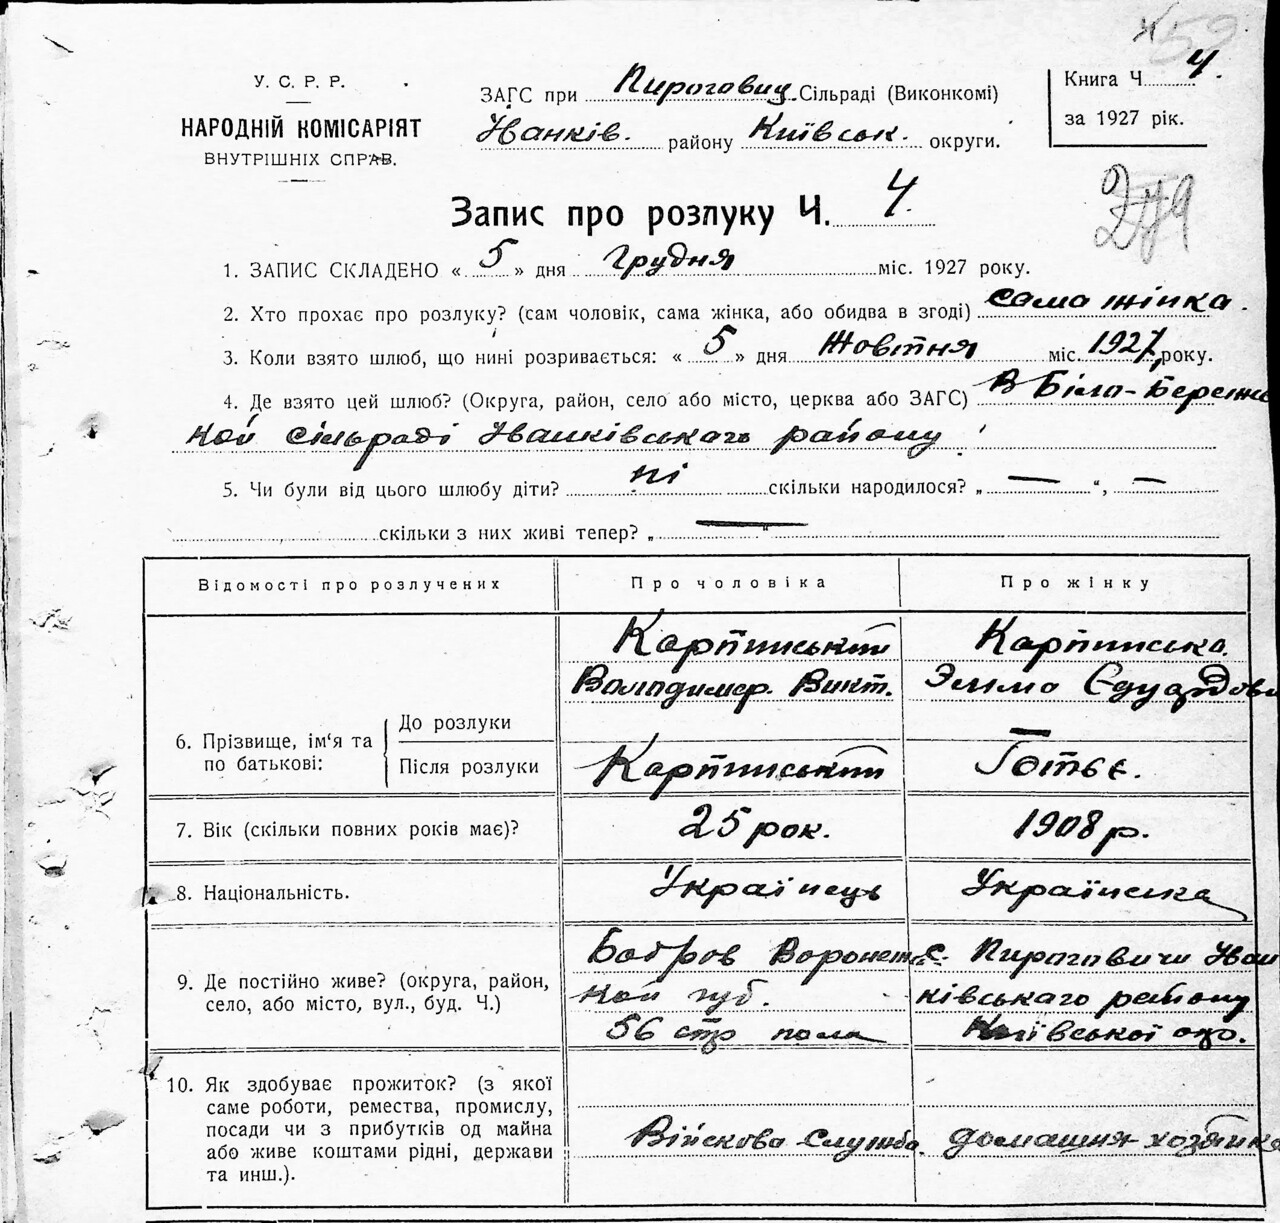 У. С. Р. Р.
НАРОДНІЙ КОМІСАРІЯТ
ВНУТРІШНІХ СПРАВ.
ЗАГС при Пирогович Сільраді (Виконкомі)
Іванків. району Київськ. округи.
Книга Ч 4.
за 1927 рік.
Запис про розлуку Ч. 4.
1. ЗАПИС СКЛАДЕНО « 5 » дня Грудня міс. 1927 року.
2. Хто прохає про розлуку? (сам чоловік, сама жінка, або обидва в згоді) сама жінка.
3. Коли взято шлюб, що нині розривається: « 5 » дня Жовтня міс. 1927 року.
4. Де взято цей шлюб? (Округа, район, село або місто, церква або ЗАГС) в Біло-Бережс
кой сільраді Іванківського району
5. Чи були від цього шлюбу діти? ні скільки народилося? „ — “, —
скільки з них живі тепер? „ — “
Відомості про розлучених
Про чоловіка
Про жінку
6. Прізвище, ім'я та по батькові:
До розлуки
Після розлуки
Карпинський
Володимер. Викт.
Карпинський
Карпинська
Эмма Едуардовн
Готьє.
7. Вік (скільки повних років має)?
25 рок.
1908 р.
8. Національність.
Українець
Українска
9. Де постійно живе? (округа, район,
село, або місто, вул., буд. Ч.)
Бобров Воронежс
кой губ.
56 стр полк
с. Пироговичи Іван
ківського району
Київської окр.
10. Як здобуває прожиток? (з якої
саме роботи, ремества, промислу,
посади чи з прибутків од майна
або живе коштами рідні, держави
та инш.).
Війскова Служба.
домашня хозяйка